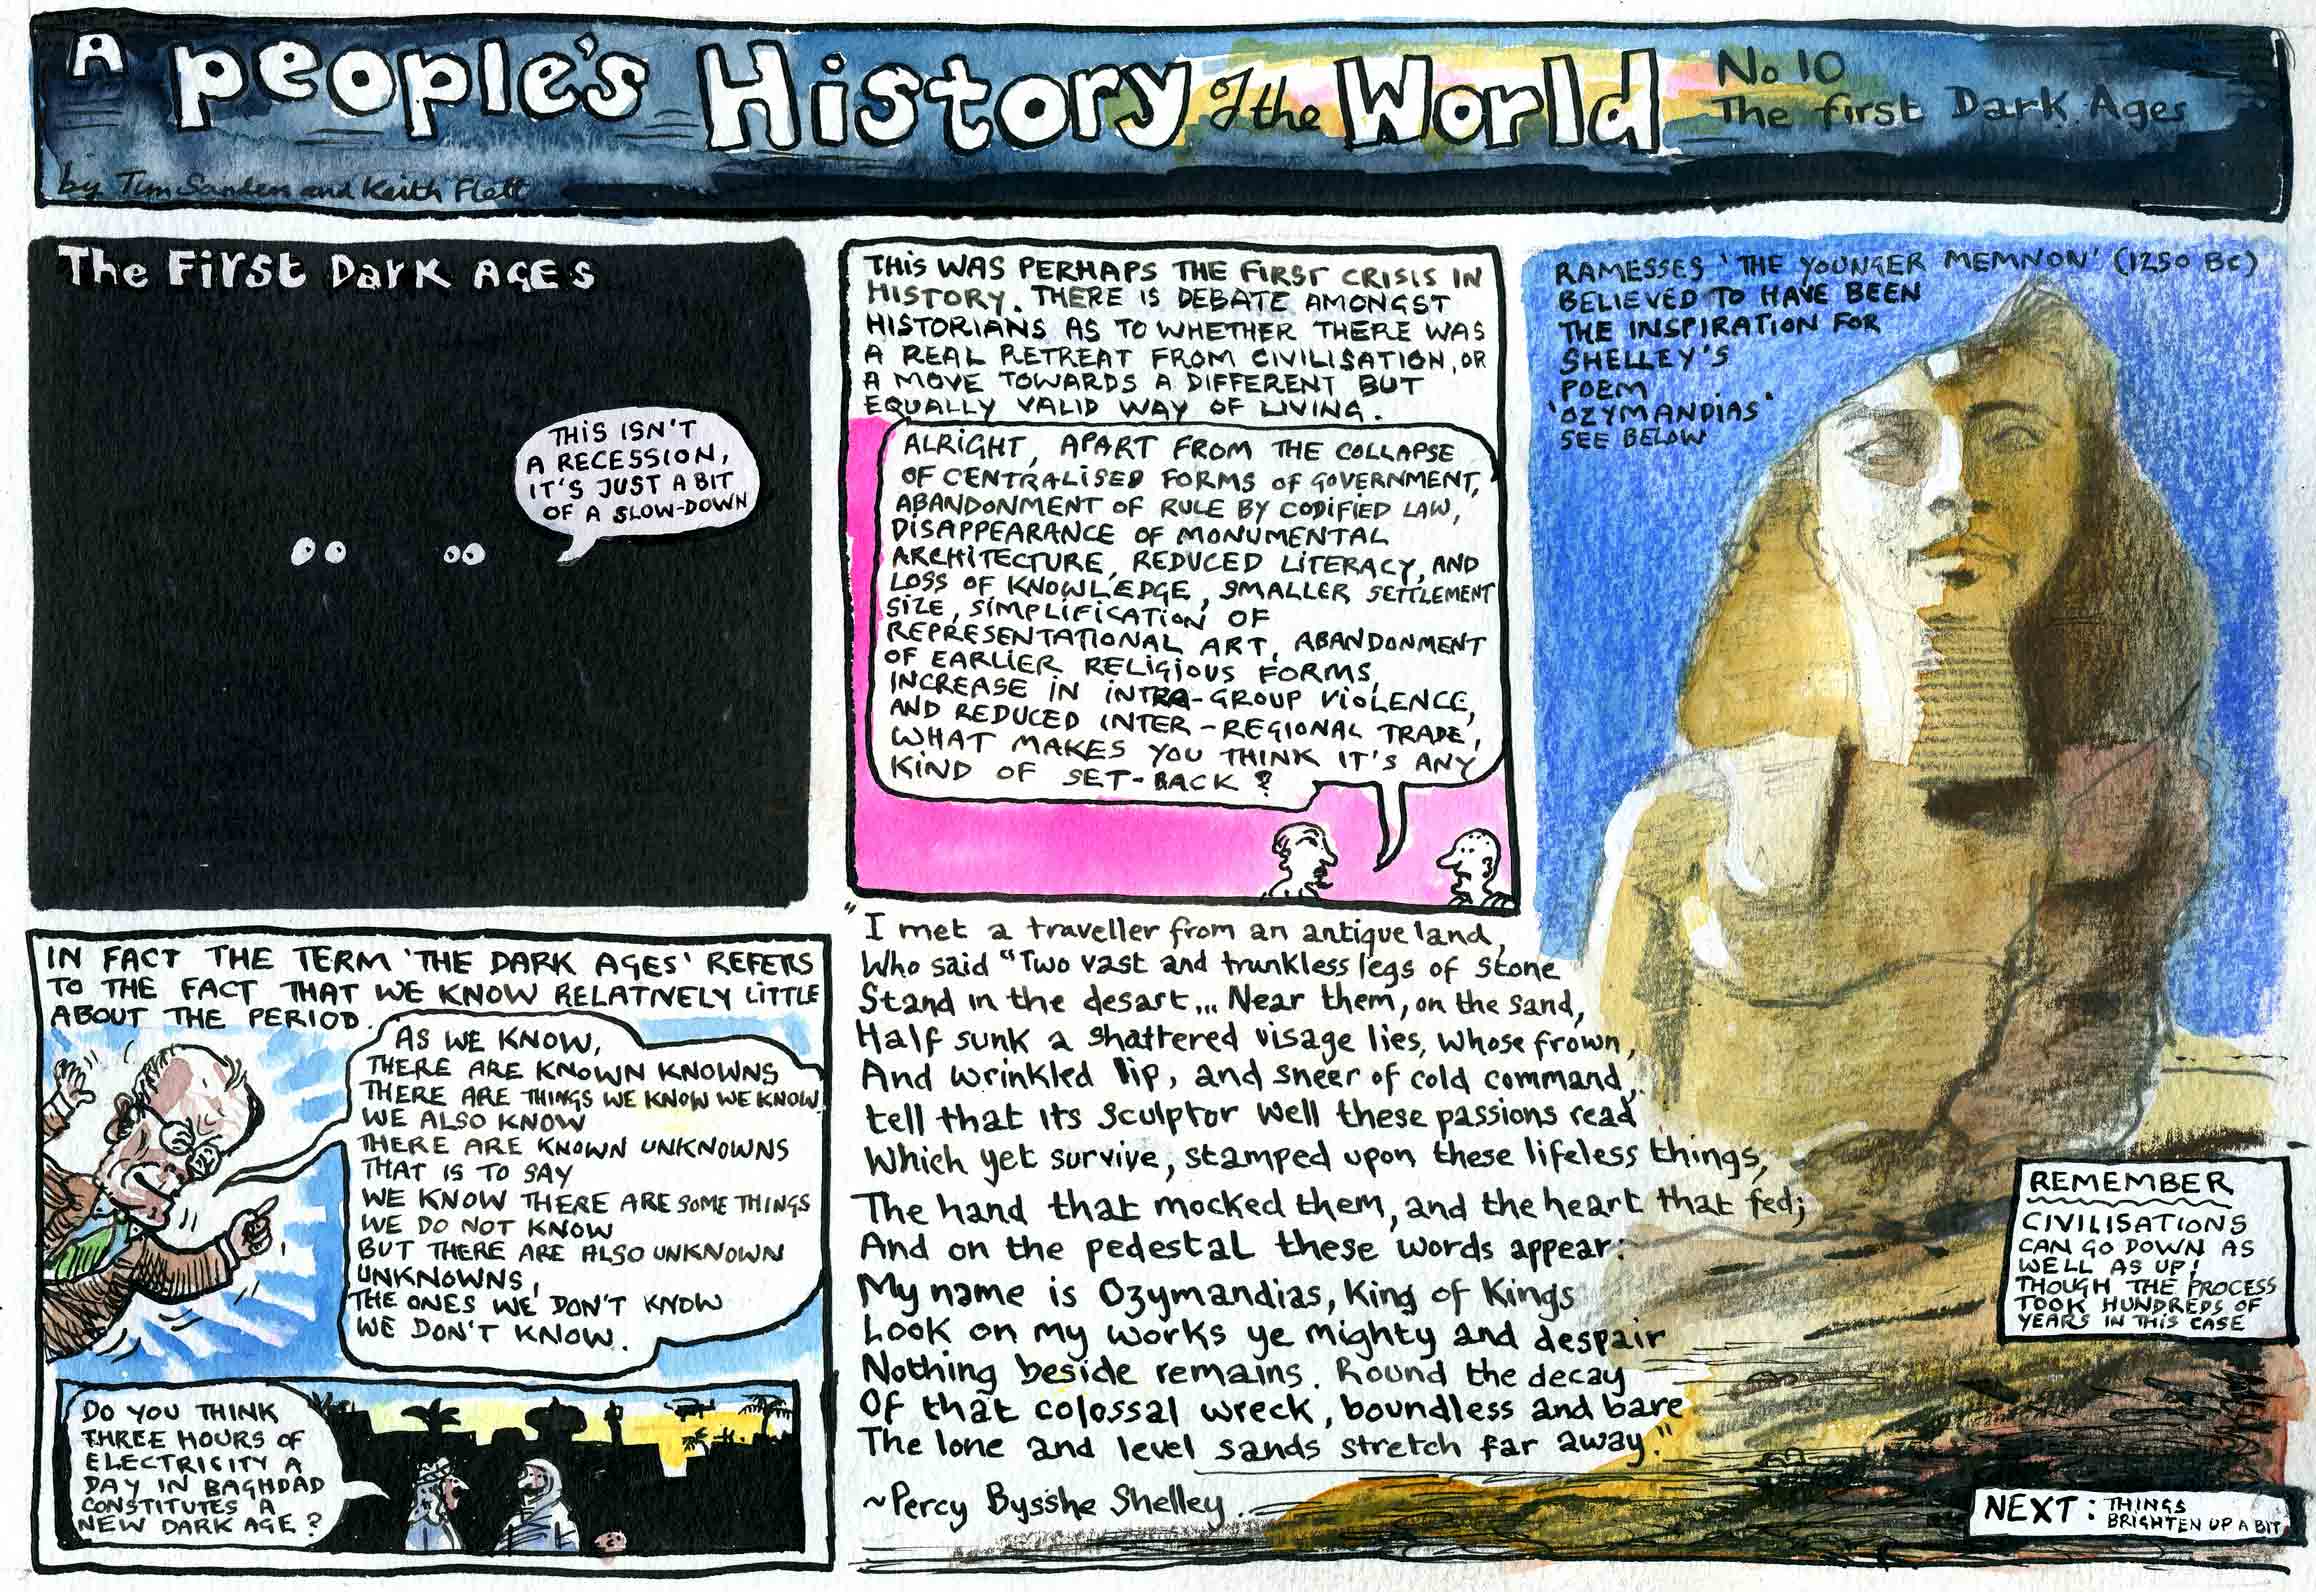 A People's History of the World
No 10
The first Dark Ages
by Tim Sanders and Keith Flett
The First Dark Ages
THIS ISN'T
A RECESSION,
IT'S JUST A BIT
OF A SLOW-DOWN
THIS WAS PERHAPS THE FIRST CRISIS IN
HISTORY. THERE IS DEBATE AMONGST
HISTORIANS AS TO WHETHER THERE WAS
A REAL RETREAT FROM CIVILISATION, OR
A MOVE TOWARDS A DIFFERENT BUT
EQUALLY VALID WAY OF LIVING.
ALRIGHT, APART FROM THE COLLAPSE
OF CENTRALISED FORMS OF GOVERNMENT,
ABANDONMENT OF RULE BY CODIFIED LAW,
DISAPPEARANCE OF MONUMENTAL
ARCHITECTURE, REDUCED LITERACY, AND
LOSS OF KNOWLEDGE, SMALLER SETTLEMENT
SIZE, SIMPLIFICATION OF
REPRESENTATIONAL ART, ABANDONMENT
OF EARLIER RELIGIOUS FORMS,
INCREASE IN INTRA-GROUP VIOLENCE,
AND REDUCED INTER-REGIONAL TRADE,
WHAT MAKES YOU THINK IT'S ANY
KIND OF SET-BACK?
RAMESSES 'THE YOUNGER MEMNON' (1250 BC)
BELIEVED TO HAVE BEEN
THE INSPIRATION FOR
SHELLEY'S
POEM
'OZYMANDIAS'
SEE BELOW
IN FACT THE TERM 'THE DARK AGES' REFERS
TO THE FACT THAT WE KNOW RELATIVELY LITTLE
ABOUT THE PERIOD.
AS WE KNOW,
THERE ARE KNOWN KNOWNS
THERE ARE THINGS WE KNOW WE KNOW
WE ALSO KNOW
THERE ARE KNOWN UNKNOWNS
THAT IS TO SAY
WE KNOW THERE ARE SOME THINGS
WE DO NOT KNOW
BUT THERE ARE ALSO UNKNOWN
UNKNOWNS,
THE ONES WE DON'T KNOW
WE DON'T KNOW.
DO YOU THINK
THREE HOURS OF
ELECTRICITY A
DAY IN BAGHDAD
CONSTITUTES A
NEW DARK AGE?
"I met a traveller from an antique land,
Who said "Two vast and trunkless legs of stone
Stand in the desart... Near them, on the sand,
Half sunk a shattered visage lies, whose frown,
And wrinkled lip, and sneer of cold command,
tell that its sculptor well these passions read
Which yet survive, stamped upon these lifeless things,
The hand that mocked them, and the heart that fed;
And on the pedestal these words appear:
My name is Ozymandias, King of Kings
Look on my works ye mighty and despair
Nothing beside remains. Round the decay
Of that colossal wreck, boundless and bare
The lone and level sands stretch far away."
~Percy Bysshe Shelley.
REMEMBER
CIVILISATIONS
CAN GO DOWN AS
WELL AS UP!
THOUGH THE PROCESS
TOOK HUNDREDS OF
YEARS IN THIS CASE
NEXT: THINGS
BRIGHTEN UP A BIT